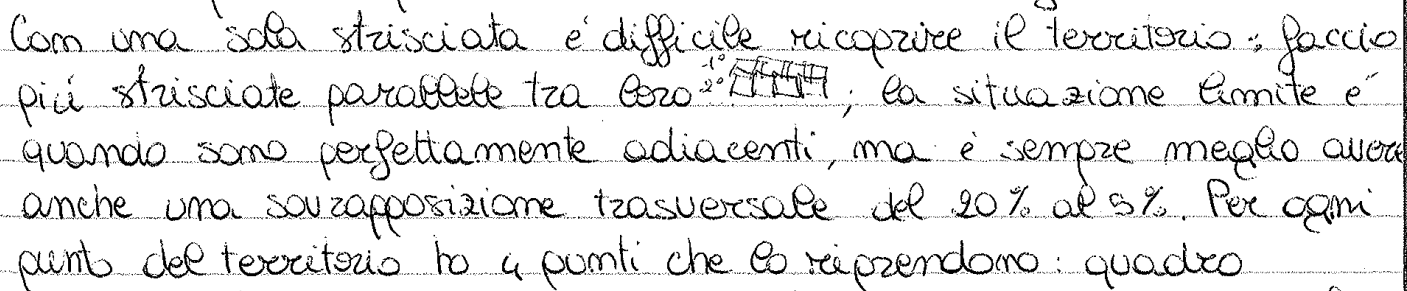 Con una sola strisciata é difficile ricoprire il territorio : faccio
più strisciate parallele tra loro 1° 2° ; la situazione limite é
quando sono perfettamente adiacenti, ma è sempre meglio avere
anche una sovrapposizione trasversale del 20% al 5%. Per ogni
punto del territorio ho 4 punti che lo riprendono : quadro